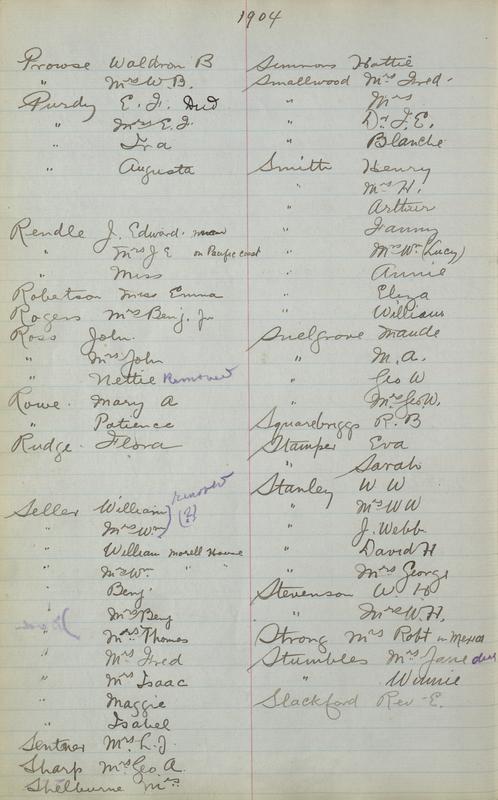 1904
Prowse Waldron B
" Mrs W B.
Purdy E. J. Died
" Mrs E. J.
" Ira
" Augusta
Rendle J. Edward.
" Mrs J E on Pacific coast
" Miss
Robertson Miss Emma
Rogers Mrs Benj. Jr
Ross John.
" Mrs John
" Nettie Removed
Rowe. Mary A
" Patience
Rudge. Flora
Seller William removed
" Mrs Wm (2)
" William Morell House
" Mrs Wm " "
" Benj.
" Mrs Benj
" Mrs Thomas
" Mrs Fred
" Mrs Isaac
" Maggie
" Isabel
Sentner Mrs L. J.
Sharp Mrs Geo A.
Shelburne Mrs
Simmons Hattie
Smallwood Mrs Fred.
" Mrs
" Dr. J. E.
" Blanche
Smith Henry
" Mrs H.
" Arthur
" Fanny
" Mrs Wm (Lucy)
" Annie
" Eliza
" William
Snelgrove Maude
" M. A.
" Geo W
" Mrs Geo W.
Squarebriggs R. B
Stamper Eva
" Sarah
Stanley W W
" Mrs W W
" J. Webb
" David H
" Mrs George
Stevenson W H
" Mrs W. H.
Strong Mrs Robt in Mexico
Stumbles Mrs Jane died
" Winnie
Slackford Rev. E.